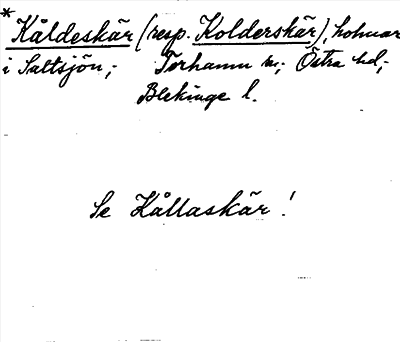 * Kåldeskär (resp. Kolderskär), holmar
i Saltsjön,; Torhamn s.; Östra hd,;
Blekinge l.
Se Kållaskär!